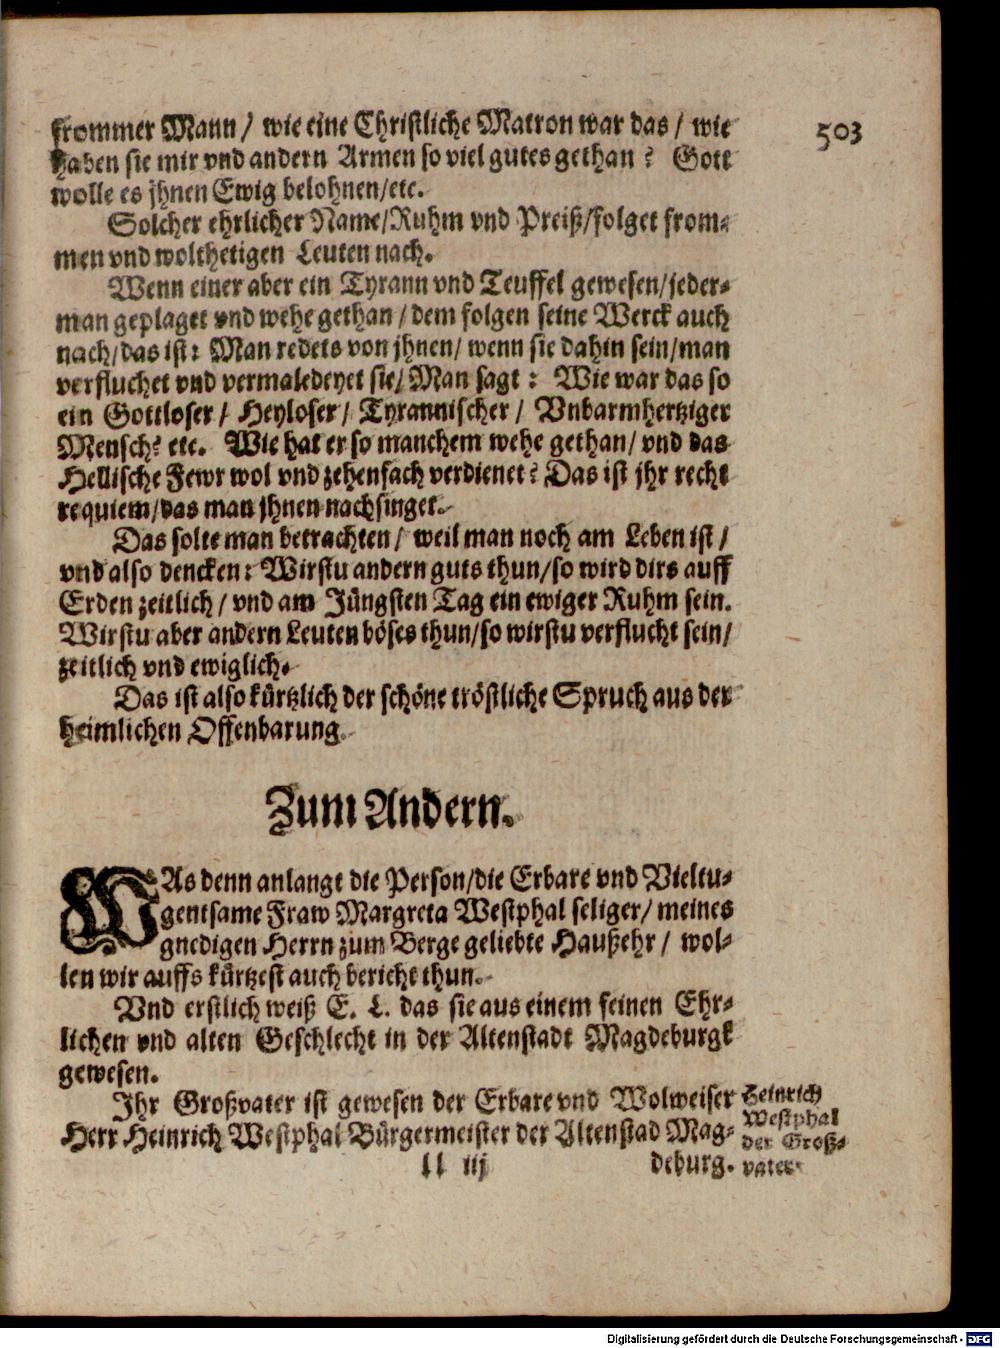 503
frommer Mann / wie eine Christliche Matron war das / wie
haben sie mir vnd andern Armen so viel gutes gethan? Gott
wolle es jhnen Ewig belohnen/etc.
Solcher ehrlicher Name/Ruhm vnd Preiß/folget from-
men vnd wolthetigen Leuten nach.
Wenn einer aber ein Tyrann vnd Teuffel gewesen/jeder-
man geplaget vnd wehe gethan / dem folgen seine Werck auch
nach/das ist: Man redets von jhnen/ wenn sie dahin sein/man
verfluchet vnd vermaledeyet sie/ Man sagt: Wie war das so
ein Gottloser / Heyloser / Tyrannischer / Vnbarmhertziger
Mensch? etc. Wie hat er so manchem wehe gethan/ vnd das
Hellische Fewr wol vnd zehenfach verdienet? Das ist jhr recht
requiem/das man jhnen nachsinget.
Das solte man betrachten / weil man noch am Leben ist /
vnd also dencken: Wirstu andern guts thun/so wird dirs auff
Erden zeitlich / vnd am Jüngsten Tag ein ewiger Ruhm sein.
Wirstu aber andern Leuten böses thun/so wirstu verflucht sein/
zeitlich vnd ewiglich.
Das ist also kürtzlich der schöne tröstliche Spruch aus der
heimlichen Offenbarung.
Zum Andern.
WAs denn anlangt die Person/die Erbare vnd Vieltu-
gentsame Fraw Margreta Westphal seliger/ meines
gnedigen Herrn zum Berge geliebte Haußehr / wol-
len wir auffs kürtzest auch bericht thun.
Vnd erstlich weiß E. L. das sie aus einem feinen Ehr-
lichen vnd alten Geschlecht in der Altenstadt Magdeburgk
gewesen.
Ihr Großvater ist gewesen der Erbare vnd Wolweiser
Herr Heinrich Westphal Bürgermeister der Altenstad Mag-
Heinrich
Westphal
der Groß-
vater
Ll iij
deburg.
Digitalisierung gefördert durch die Deutsche Forschungsgemeinschaft - DFG